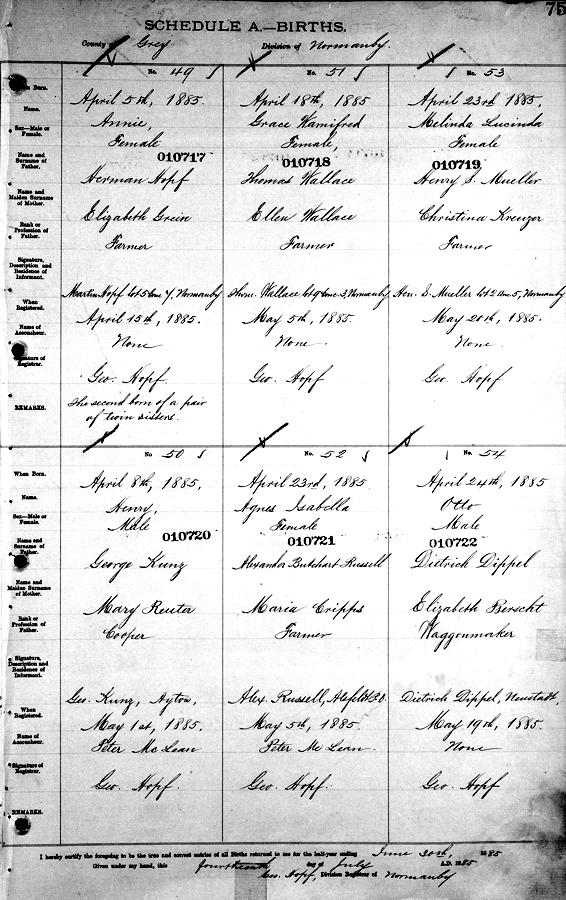 75
SCHEDULE A.—BIRTHS.
County of Grey Division of Normanby.
No. 49 No. 51 No. 53
When Born. April 5th, 1885. April 18th, 1885 April 23rd 1885,
Name. Annie, Grace Wamifred Melinda Lucinda
Sex—Male or Female. Female Female, Female
010717 010718 010719
Name and Surname of Father. Herman Hopf Thomas Wallace Henry S. Mueller
Name and Maiden Surname of Mother. Elizabeth Grein Ellen Wallace Christina Kreuzer
Rank or Profession of Father. Farmer Farmer Farmer
Signature, Description and Residence of Informant. Martin Hopf Lot 5 Con 7, Normanby Thom. Wallace Lot 9 Conc. 3, Normanby Hen. S. Mueller Lot 2 Con. 5, Normanby
When Registered. April 15th, 1885. May 5th, 1885. May 20th, 1885.
Name of Accoucheur. None None. None.
Signature of Registrar. Geo. Hopf. Geo. Hopf Geo. Hopf
REMARKS. The second born of a pair
of twin sisters.
No 50 No. 52 No. 54
When Born. April 8th, 1885, April 23rd, 1885. April 24th, 1885
Name. Henry, Agnes Isabella Otto
Sex—Male or Female. Male Female Male
010720 010721 010722
Name and Surname of Father. George Kunz Alexander Butchart Russell Dietrich Dippel
Name and Maiden Surname of Mother. Mary Reuter Maria Cripps Elizabeth Berscht
Rank or Profession of Father. Cooper Farmer Waggonmaker
Signature, Description and Residence of Informant. Geo. Kunz, Ayton, Alex Russell, Alsfeldt P.O. Dietrich Dippel, Neustadt,
When Registered. May 1st, 1885. May 5th, 1885. May 19th, 1885.
Name of Accoucheur. Peter McLean Peter McLean. None
Signature of Registrar. Geo. Hopf. Geo. Hopf. Geo. Hopf
REMARKS.
I hereby certify the foregoing to be the true and correct entries of all Births returned to me for the half-year ending June 30th, 1885
Given under my hand, this fourteenth day of July A.D. 1885
Geo. Hopf, Division Registrar of Normanby